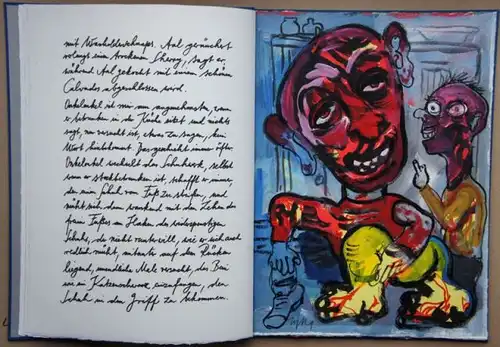 mit Wacholderschnaps. Aal geräuchert
verlangt einen trockenen Sherry, sagt er
während Aal gekocht mit einem schönen
Calvados abgeschlossen wird.
Onkelonkel ist mir am angenehmsten, wenn
er betrunken in der Küche sitzt und nichts
sagt, nur versucht ist, etwas zu sagen, kein
Wort hinbekommt. Das geschieht immer öfter.
Onkelonkel wechselt das Schuhwerk, selbst
wenn er stockbetrunken ist, schafft er immer,
den ein Schuh vom Fuß zu streifen, und
müht sich dann wankend mit den Zehen des
freien Fußes am Hacken des widerspenstigen
Schuhs, der nicht runter will, wie er sich auch
redlich müht, mitunter auf dem Rücken
liegend, unendliche Male versucht, das Bein
wie ein Katzenschwanz einzufangen, den
Schuh in den Griff zu bekommen.